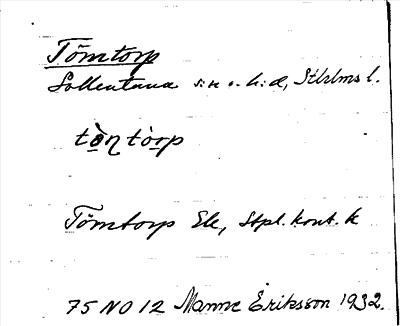 Tömtorp
Sollentuna s:n o. h:d, Sthlms l.
tön tòrp
Tömtorp Ek, Stpl. kont. k
75 NO 12 Manne Eriksson 1932.